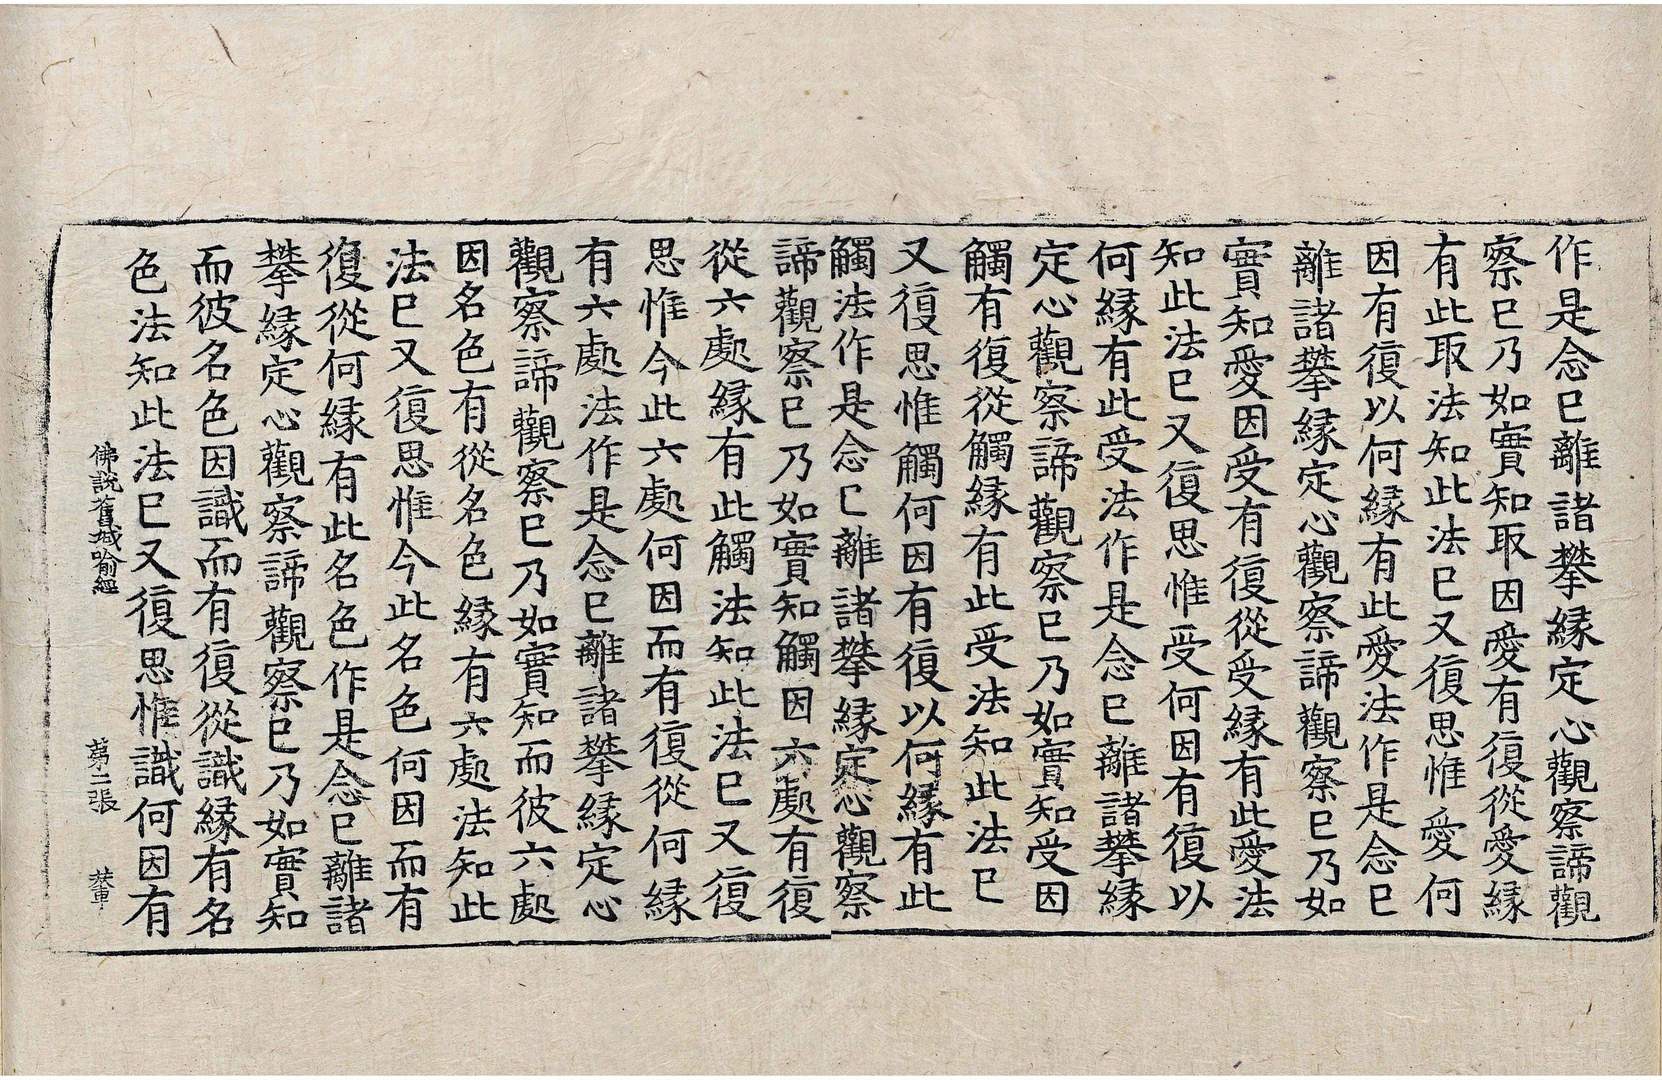 作是念已離諸攀縁定心觀察諦觀
察已乃如實知取因愛有復從愛縁
有此取法知此法已又復思惟愛何
因有復以何縁有此愛法作是念已
離諸攀縁定心觀察諦觀察已乃如
實知愛因受有復從受縁有此愛法
知此法已又復思惟受何因有復以
何縁有此受法作是念已離諸攀縁
定心觀察諦觀察已乃如實知受因
觸有復從觸縁有此受法知此法已
又復思惟觸何因有復以何縁有此
觸法作是念已離諸攀縁定心觀察
諦觀察已乃如實知觸因六處有復
從六處縁有此觸法知此法已又復
思惟今此六處何因而有復從何縁
有六處法作是念已離諸攀縁定心
觀察諦觀察已乃如實知而彼六處
因名色有從名色縁有六處法知此
法已又復思惟今此名色何因而有
復從何縁有此名色作是念已離諸
攀縁定心觀察諦觀察已乃如實知
而彼名色因識而有復從識縁有名
色法知此法已又復思惟識何因有
佛説舊城喻經 第二張 輦